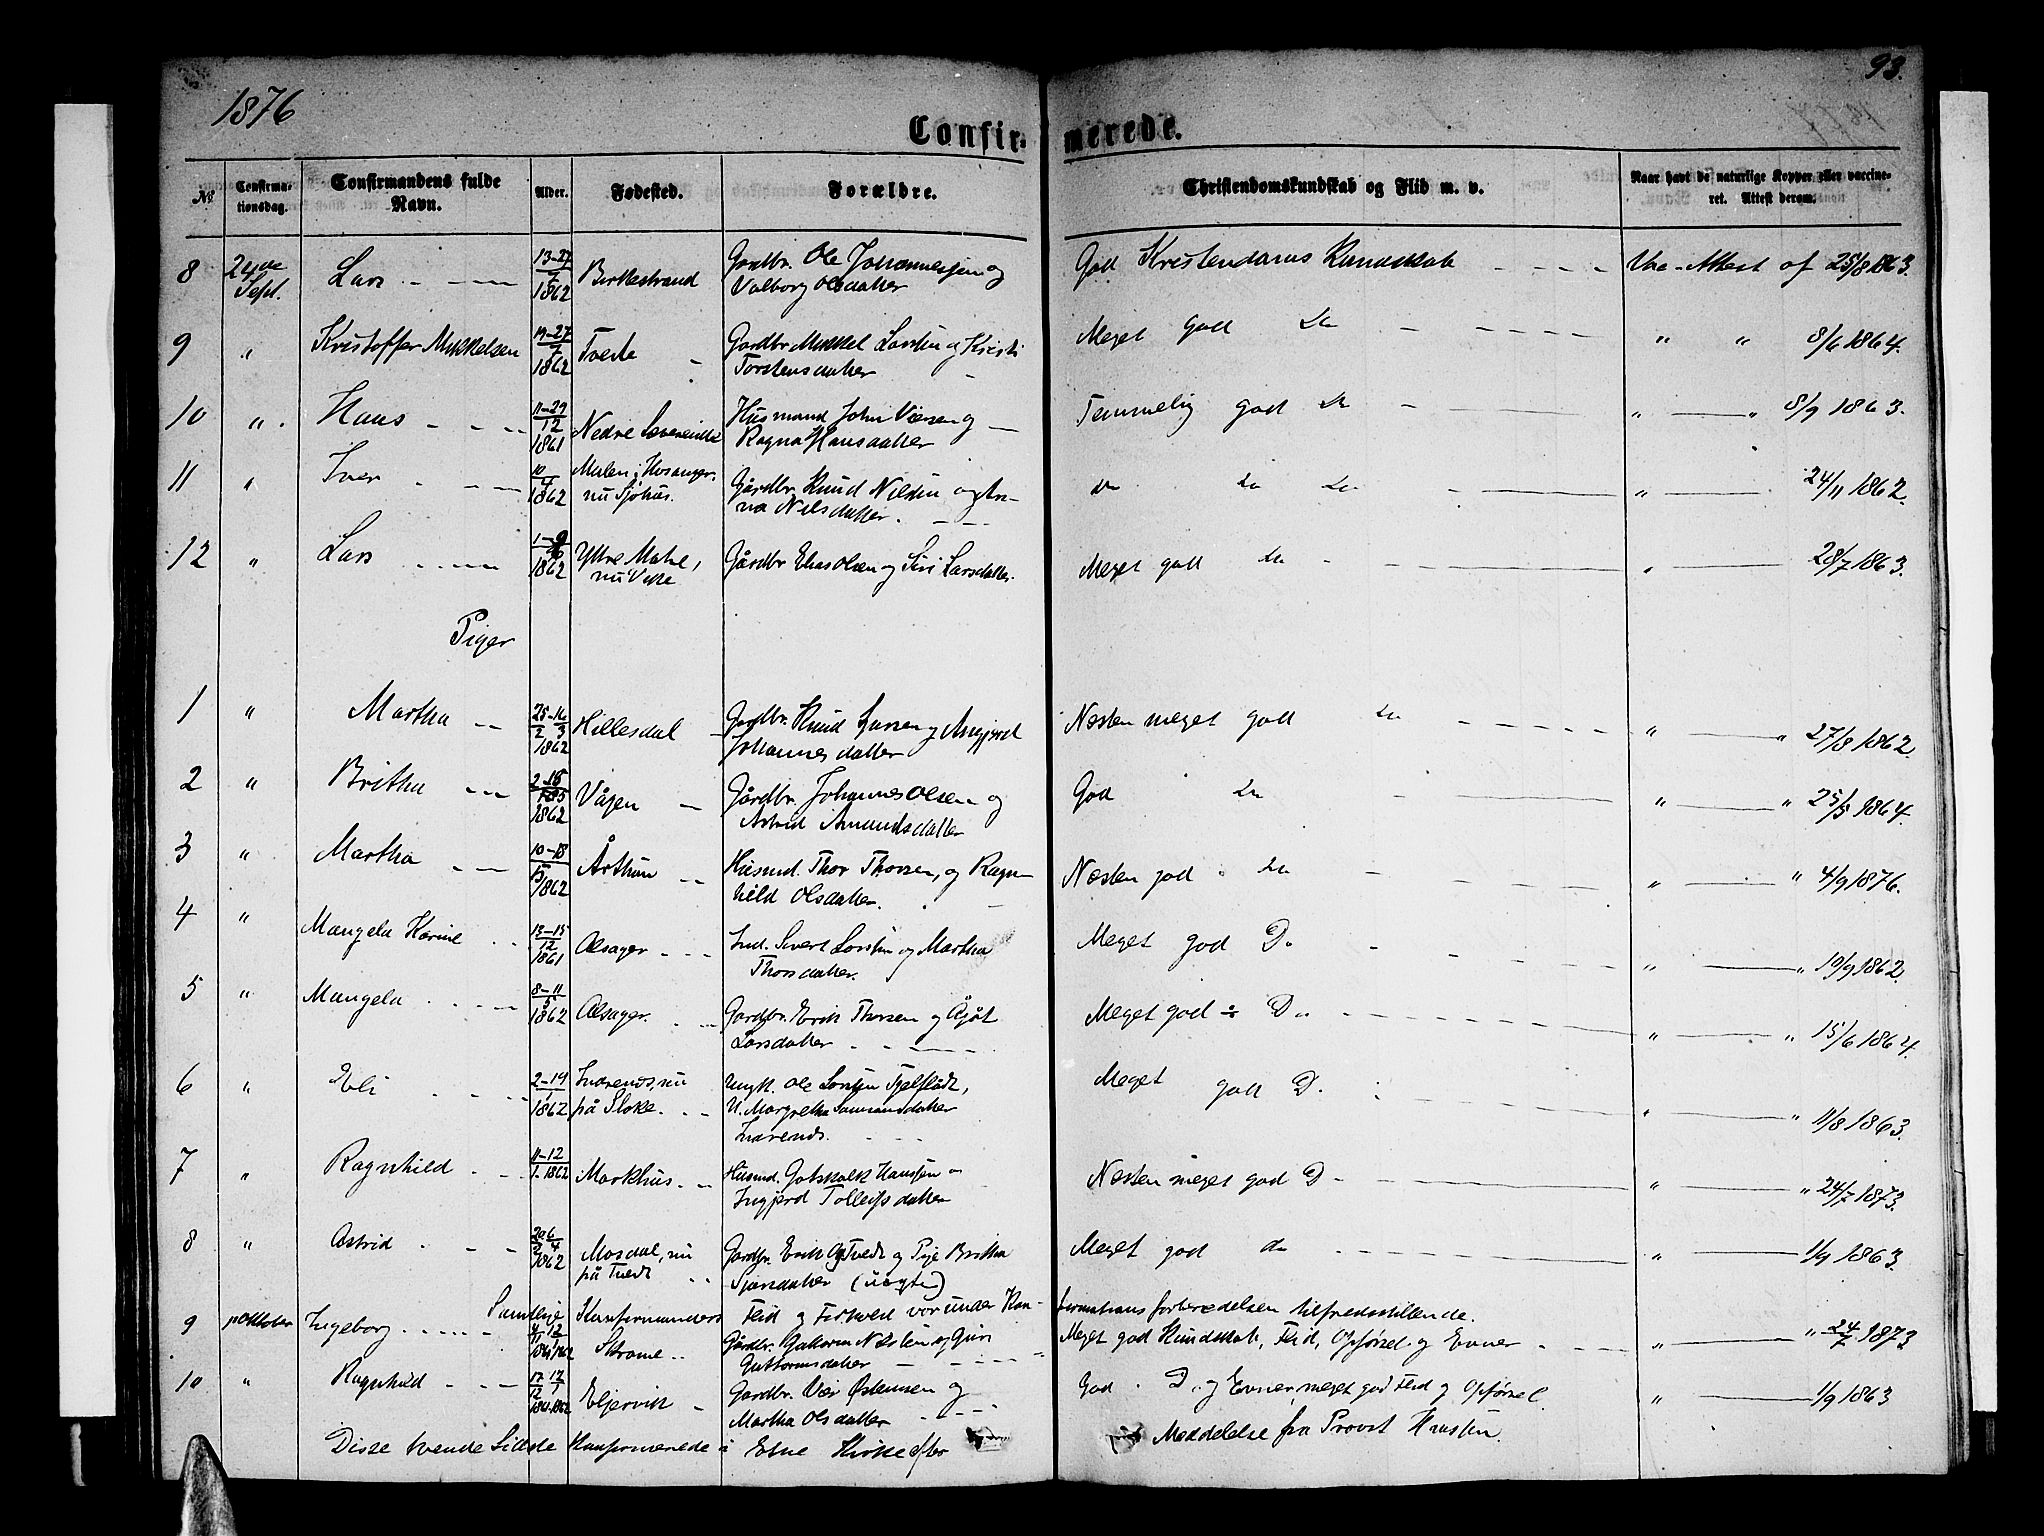 1876
93.
Confirmerede.
No
Confirmationsdag.
Confirmandens fulde Navn.
Alder.
Fødested.
Forældre.
Christendomskundskab og Flid m. v.
Naar havt de naturlige Kopper eller vaccineret. Attest derom.
8 24de Sept. Lars 13-27/7 1862 Birkestrand Gardbr. Ole Johannesjen og Valborg Olsdatter God Kristendoms Kundskab Vac. Attest af 25/8 1863.
9 " Kristoffer Mikkelsen 19-27/7 1862 Tveite Gardbr Mikkel Larsen og Kristi Torstensdatter Meget God do " " 8/6 1864.
10 " Hans 11-29/12 1861 Nedre Husmand John og Ragna Hansdatter Temmelig god do " " 8/9 1863.
11 " Iver 10/4 1862 Mulen i Hosanger. nu Sjohus. Gårdbr. Knud Nilsen og Anna Nilsdatter. do do do " 24/11 1862.
12 " Lars 1-9 1862 Yttre Matre, nu Gårdbr Elias Olsen og Siri Larsdatter. Meget god do " 28/7 1863.
Piger
1 " Martha 25/2-16/3 1862 Hillesdal Gardbr. Knud Larsen og Angjerd Johannesdatter Næsten meget god do " " 27/8 1862
2 " Britha 2-15 1862 Vågen Gårdbr. Johannes Olsen og Astrid Amundsdatter God do " " 25/5 1864.
3 " Martha 10-18/5 1862 Årthun Husmd. Thor Thorsen, og Ragnhild Olsdatter. Næsten god do " " 4/9 1876.
4 " Mangela Karine 13-15/12 1861 Alsager Ind. Sivert Larsen og Martha Thorsdatter. Meget god Do " " 19/9 1862
5 " Mangela 8-11/5 1862 Alsager. Gardbr. Erik Thorsen og Ågåt Larsdatter Meget god ÷ Do " " 15/6 1864.
6 " Eli 2-19/1 1862 nu på Stoke. Ungk. Ole Larsen Fjelstadt, U. Margretha Samsonsdatter Meget god D. " " 11/8 1863.
7 " Ragnhild 11-12/1. 1862 Markhus. Husmd. Gotskalk Hanssen o Ingjerd Tolleifsdatter Næsten meget god D. " " 24/7 1873.
8 " Astrid 20/2 6/4 1862 Mosdal, nu på Tvedt Gardbr. Erik O Tvedt og Pige Britha Sjursdatter (uægte) Meget god do " 1/9 1863.
Samtlige Konfirmanders Flid og Forhold var under Konfirmationsforberedelsen tilfredsstillende.
9 1 Oktober Ingeborg 4/11 12/1 1861 1862 Skrome Gårdbr. Guttorm Nilsen og Guri Guttormsdatter Meget god Kundskab, Flid, Opførsel og Evner " " 24/7 1873
10 " Ragnhild 12/12 12/1 1861-1862 Eljervik Gardbr. Vier Østensen og Martha Olsdatter God. D. og Evner, meget god Flid og Opførsel. " 1/9 1863
Disse tvende Sidste Konfirmerede i Etne Kirke efter Meddelelse fra Provst Hansen.